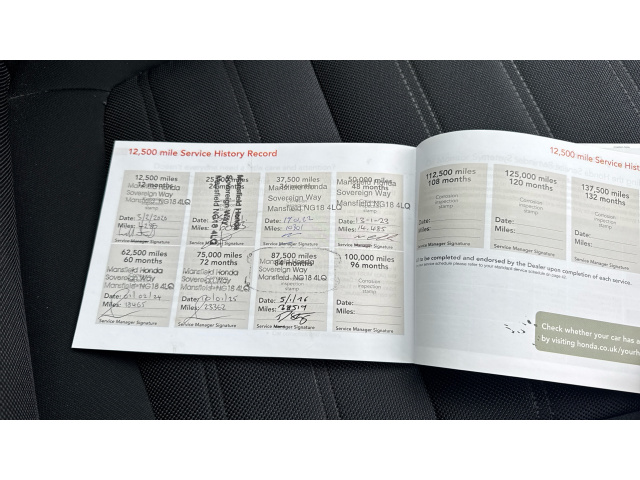 12,500 mile Service History Record
12,500 miles
12 months
Mansfield Honda
Sovereign Way
Mansfield NG18 4LQ
Date: 5/2/2020
Miles:
Service Manager Signature
24 months
Mansfield Honda
Sovereign Way
Mansfield NG18 4LQ
Date:
Miles:
Service Manager Signature
37,500 miles
36 months
Mansfield Honda
Sovereign Way
Mansfield NG18 4LQ
Date:
Miles: 10301
Service Manager Signature
50,000 miles
48 months
Mansfield Honda
Sovereign Way
Mansfield NG18 4LQ
Date: 13-1-23
Miles: 14,485
Service Manager Signature
62,500 miles
60 months
Mansfield Honda
Sovereign Way
Mansfield NG18 4LQ
Date: 01/02/24
Miles: 18465
Service Manager Signature
75,000 miles
72 months
Mansfield Honda
Sovereign Way
Mansfield NG18 4LQ
Date:
Miles: 23362
Service Manager Signature
87,500 miles
84 months
Mansfield Honda
Sovereign Way
Mansfield NG18 4LQ
Date: 5/1/26
Miles:
Service Manager Signature
100,000 miles
96 months
Corrosion
inspection
stamp
Date:
Miles:
Service Manager Signature
12,500 mile Service Hist
112,500 miles
108 months
Corrosion
inspection
stamp
Date:
Miles:
Service Manager Signature
125,000 miles
120 months
Corrosion
inspection
stamp
Date:
Miles:
Service Manager Signature
137,500 miles
132 months
Corrosion
inspection
stamp
Date:
Miles:
Service Manager Signature
to be completed and endorsed by the Dealer upon completion of each service.
Check whether your car has a
by visiting honda.co.uk/yourh